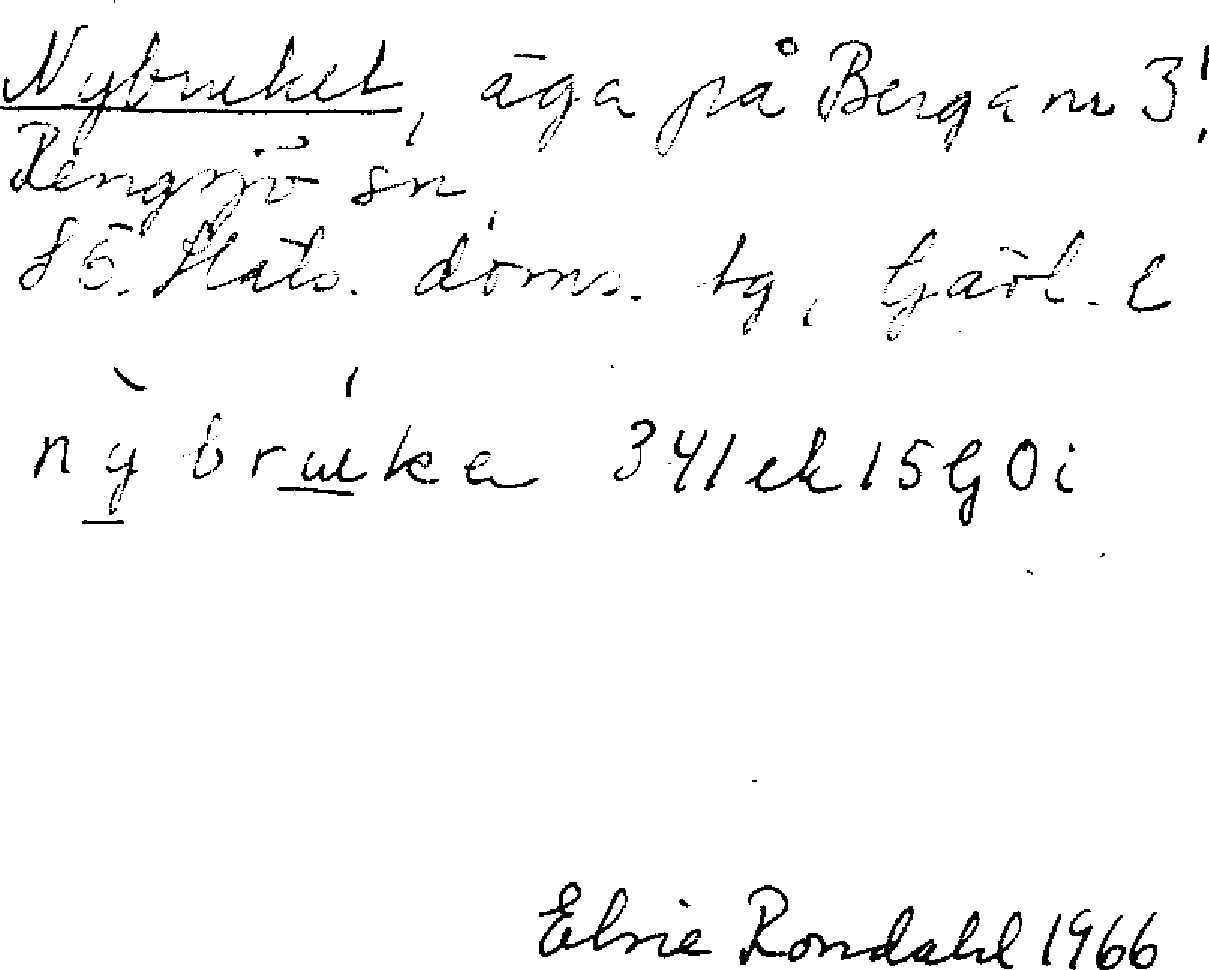 Nybruket, äga på Berga nr 3!
Rengsjö sn,
Sö. Häls. doms. tg, Gävl. l
nỳ bruka 341 ek 15 G 0 i
Elvie Rondahl 1966